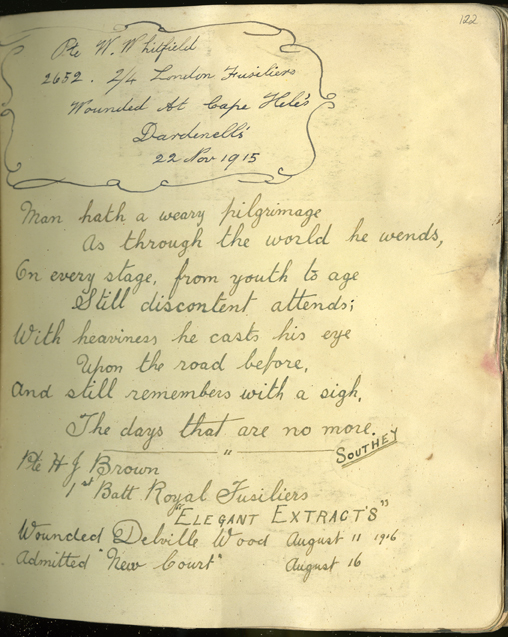 122
Pte W. Whitfield
2652. 2/4 London Fusiliers
Wounded At Cape Hele's
Dardenell's
22 Nov 1915
Man hath a weary pilgrimage
As through the world he wends,
On every stage, from youth to age
Still discontent attends;
With heaviness he casts his eye
Upon the road before,
And still remembers with a sigh,
The days that are no more.
Southey
Pte H J Brown
1st Batt Royal Fusiliers
"Elegant Extract's"
Wounded Delville Wood August 11 1916
Admitted "New Court" August 16